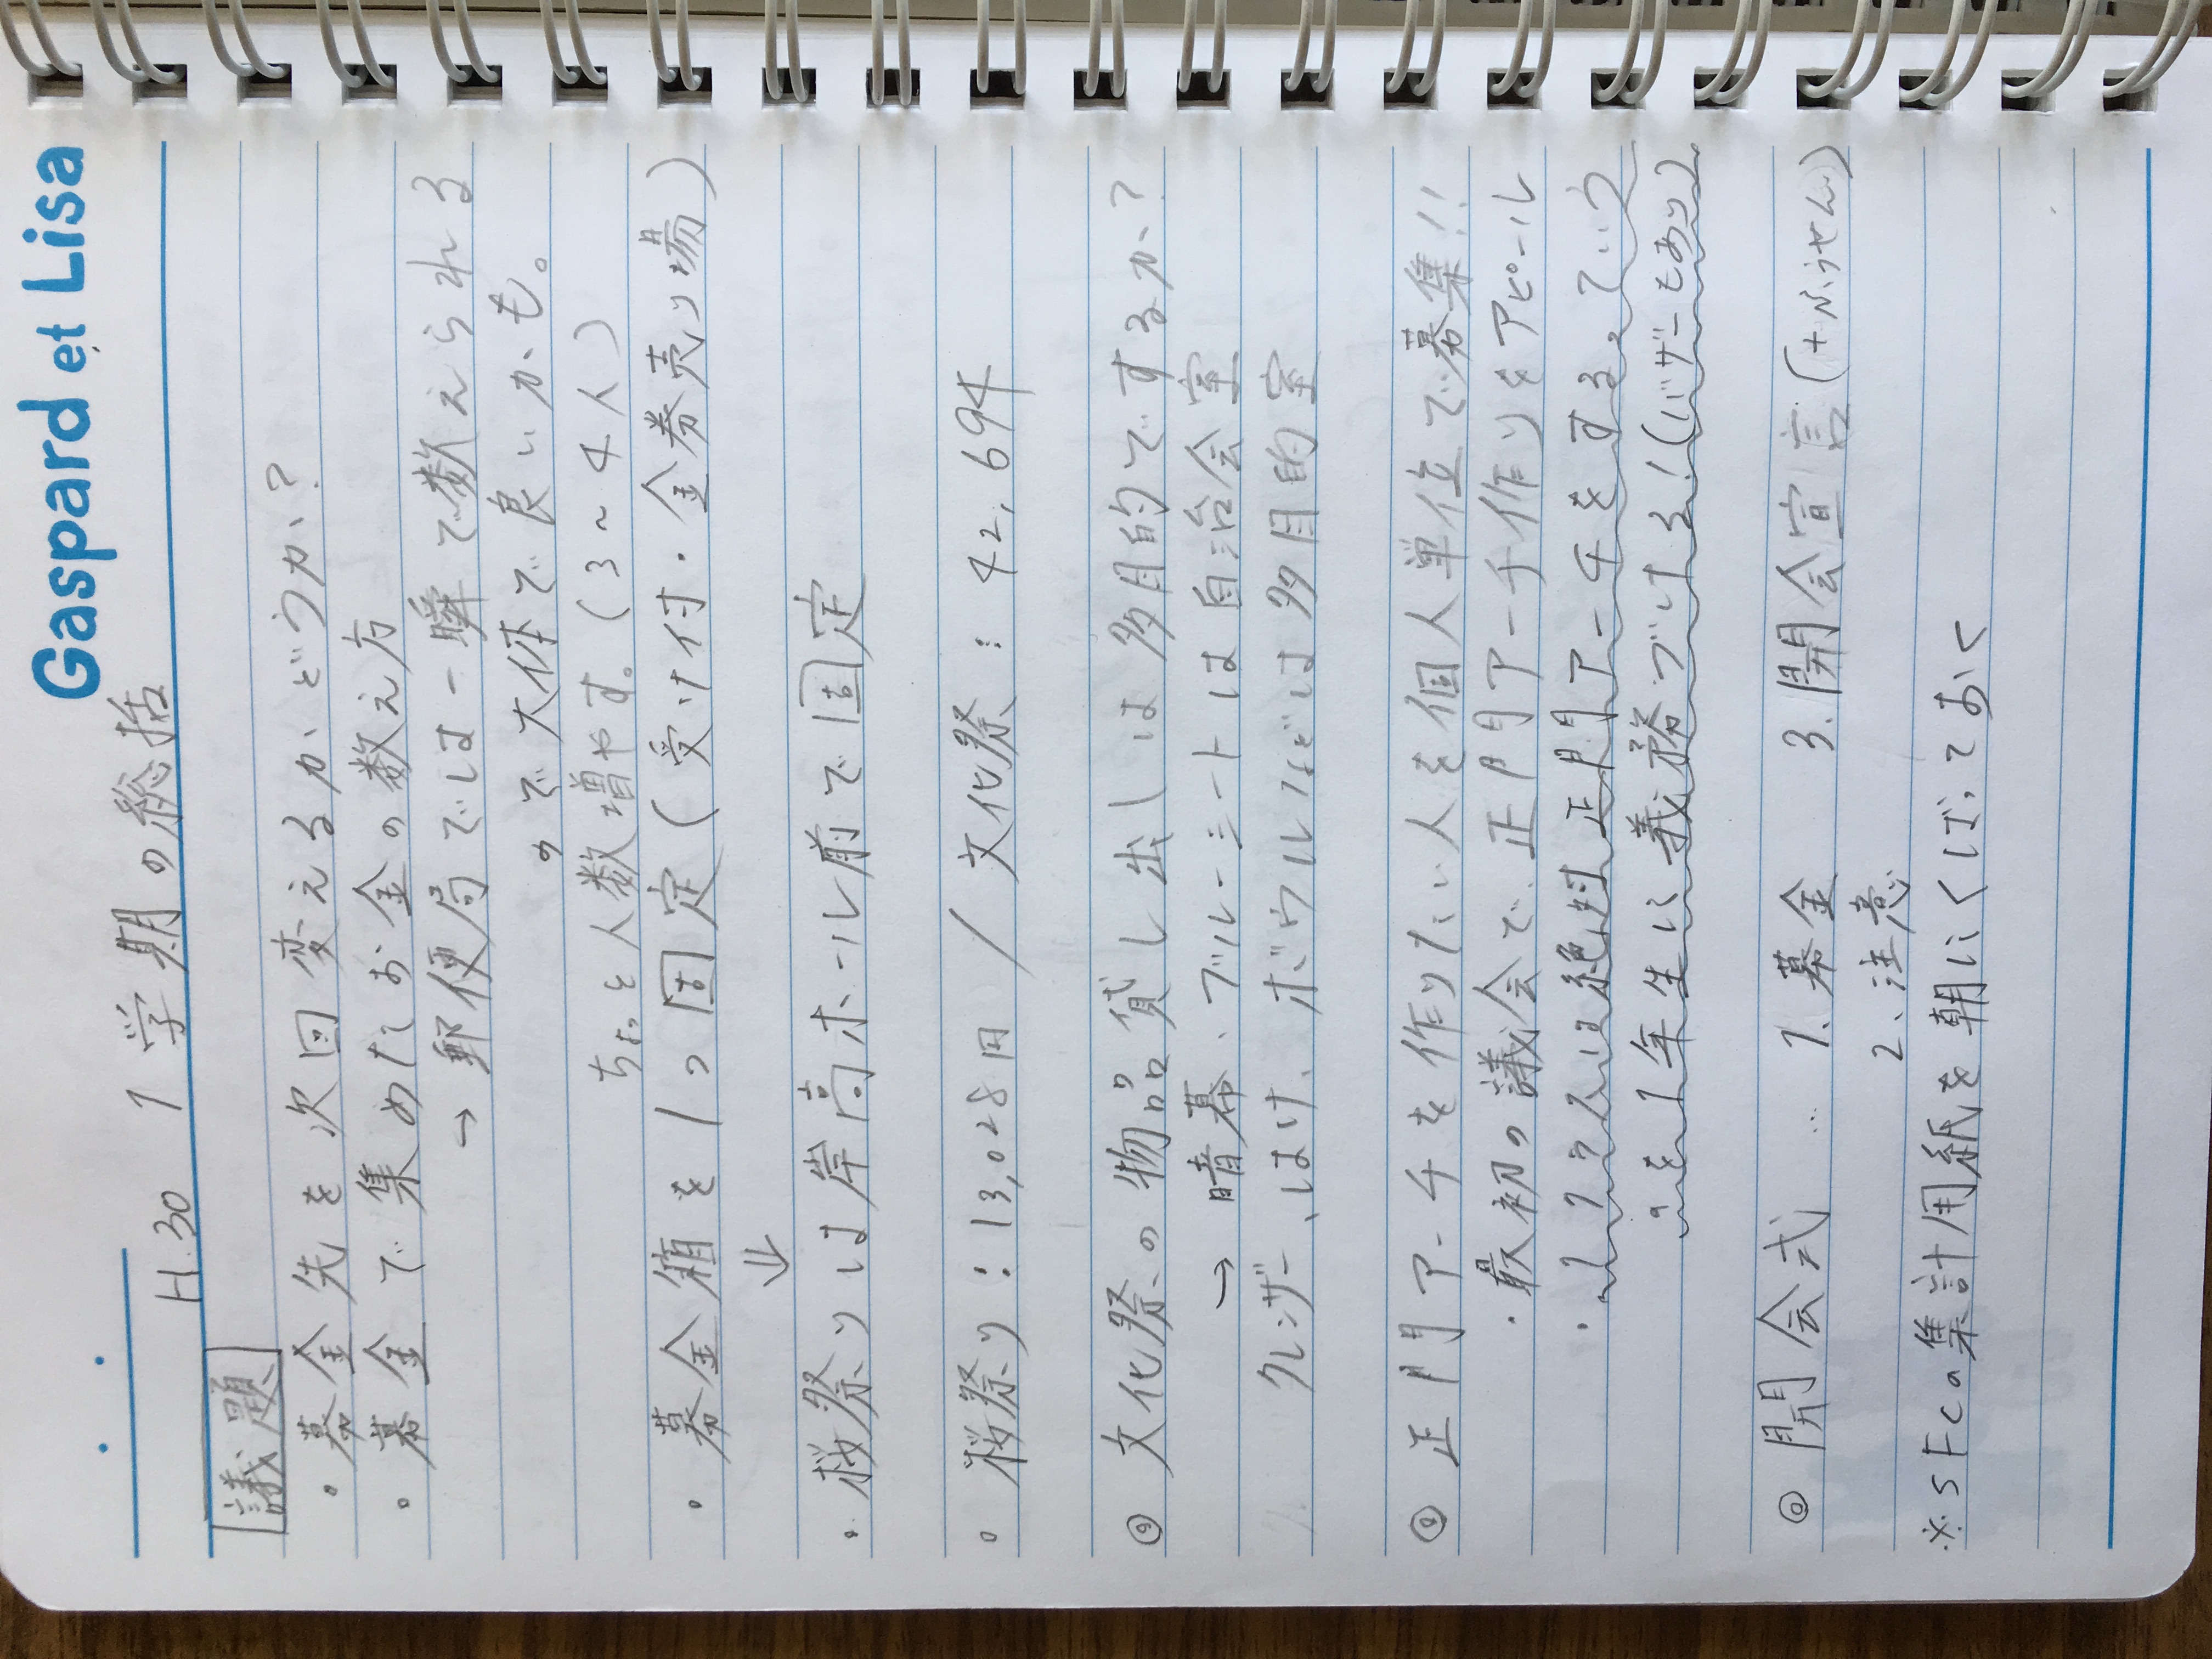 Gaspard et Lisa
H.30 1学期の総括
議題
・募金先を次回変えるかどうか?
・募金で集めたお金の数え方
→ 郵便局では一瞬で数えられる
ので大体で良いかも。
ちょっと人数増やす。(3~4人)
・募金箱を1つ固定(受け付・金券売り場)
⇓
・桜祭りは岸高ホール前で固定
・桜祭り:13,028円 / 文化祭:42,694
◎ 文化祭の物品貸し出しは多目的でするか?
→ 暗幕、ブルーシートは自治会室
クレンザー、はけ、ボウルなどは多目的室
◎ 正門アーチを作りたい人を個人単位で募集!!
・最初の議会で、正門アーチ作りをアピール
・1クラスは絶対正門アーチをする。ていう
のを1年生に義務づける!(バザーもあり)
◎ 開会式 … 1.募金 3.開会宣言(+ふうせん)
2、注意
※SFCの集計用紙を朝にくばっておく